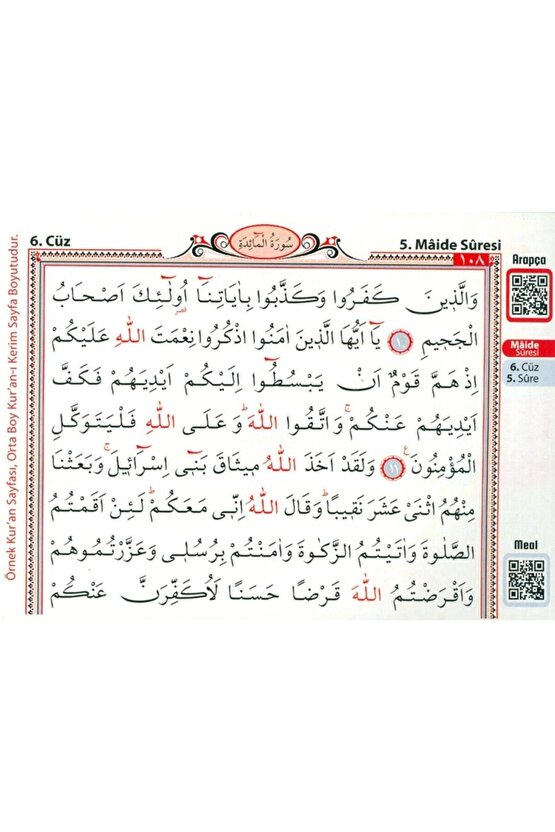 6. Cüz
سُورَةُ الْمَٓائِدَةِ
5. Mâide Sûresi
١٠٨
Arapça
وَالَّذ۪ينَ كَفَرُوا وَكَذَّبُوا بِاٰيَاتِنَٓا اُو۬لٰٓئِكَ اَصْحَابُ
قصر
الْجَح۪يمِ ﴿١٠﴾ يَٓا اَيُّهَا الَّذ۪ينَ اٰمَنُوا اذْكُرُوا نِعْمَتَ اللّٰهِ عَلَيْكُمْ
اِذْ هَمَّ قَوْمٌ اَنْ يَبْسُطُٓوا اِلَيْكُمْ اَيْدِيَهُمْ فَكَفَّ
اَيْدِيَهُمْ عَنْكُمْۚ وَاتَّقُوا اللّٰهَۜ وَعَلَى اللّٰهِ فَلْيَتَوَكَّلِ
الْمُؤْمِنُونَ۟ ﴿١١﴾ وَلَقَدْ اَخَذَ اللّٰهُ م۪يثَاقَ بَن۪ٓي اِسْرَٓائ۪يلَۚ وَبَعَثْنَا
مِنْهُمُ اثْنَيْ عَشَرَ نَق۪يبًاۜ وَقَالَ اللّٰهُ اِنّ۪ي مَعَكُمْۜ لَئِنْ اَقَمْتُمُ
الصَّلٰوةَ وَاٰتَيْتُمُ الزَّكٰوةَ وَاٰمَنْتُمْ بِرُسُل۪ي وَعَزَّرْتُمُوهُمْ
وَاَقْرَضْتُمُ اللّٰهَ قَرْضًا حَسَنًا لَاُكَفِّرَنَّ عَنْكُمْ
Mâide
Sûresi
6. Cüz
5. Sûre
Meal
Örnek Kur'an Sayfası, Orta Boy Kur'an-ı Kerim Sayfa Boyutudur.